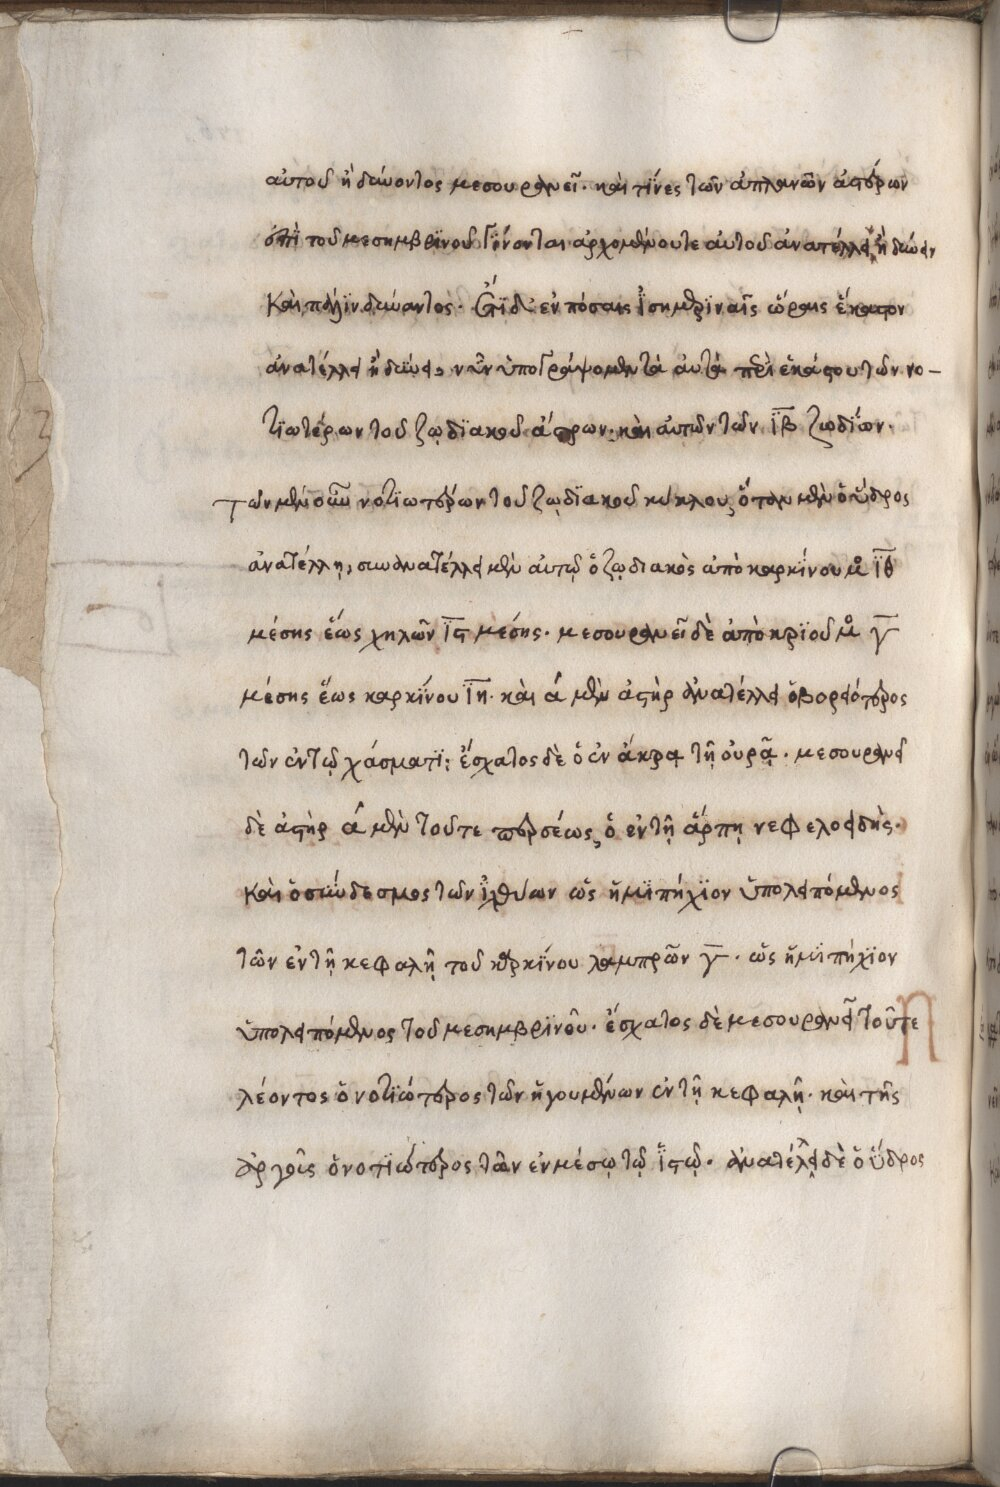 αὐτοῦ ἢ δύνοντος μεσουρανεῖ· καὶ τίνες τῶν ἀπλανῶν ἀστέρων
ἐπὶ τοῦ μεσημβρινοῦ γίνονται ἀρχομένου τε αὐτοῦ ἀνατέλλειν ἢ δύνειν
καὶ πάλιν δύναντος· ἔτι δ' ἐν πόσαις ἰσημεριναῖς ὥραις ἕκαστον
ἀνατέλλει ἢ δύνει, νῦν ὑπογράψομεν τὰ αὐτὰ περὶ ἑκάστου τῶν νο-
τιωτέρων τοῦ ζῳδιακοῦ ἄστρων· καὶ αὐτῶν τῶν ιβ ζῳδίων·
τῶν μὲν οὖν νοτιωτέρων τοῦ ζῳδιακοῦ κύκλου, ὅταν μὲν ὁ ὕδρος
ἀνατέλλῃ, συνανατέλλει μὲν αὐτῷ ὁ ζῳδιακὸς ἀπὸ καρκίνου μο ιθ
μέσης ἕως χηλῶν ις μέσης· μεσουρανεῖ δὲ ἀπὸ κριοῦ μο γ
μέσης ἕως καρκίνου ιη· καὶ ἁ μὲν ἀστὴρ ἀνατέλλει ὁ βορειότερος
τῶν ἐν τῷ χάσματι· ἔσχατος δὲ ὁ ἐν ἄκρᾳ τῇ οὐρᾷ· μεσουρανεῖ
δὲ ἀστὴρ ἁ μὲν τοῦ τε περσέως, ὁ ἐν τῇ ἅρπῃ νεφελοειδής·
καὶ ὁ σύνδεσμος τῶν ἰχθύων ὡς ἡμιπήχιον ὑπολειπόμενος
τῶν ἐν τῇ κεφαλῇ τοῦ καρκίνου λαμπρῶν γ· ὡς ἡμιπήχιον
ὑπολειπόμενος τοῦ μεσημβρινοῦ· ἔσχατος δὲ μεσουρανεῖ τοῦ τε
λέοντος ὁ νοτιώτερος τῶν ἡγουμένων ἐν τῇ κεφαλῇ· καὶ τῆς
ἀργοῦς ὁ νοτιώτερος τῶν ἐν μέσῳ τῷ ἱστῷ· ἀνατέλλει δὲ ὁ ὕδρος